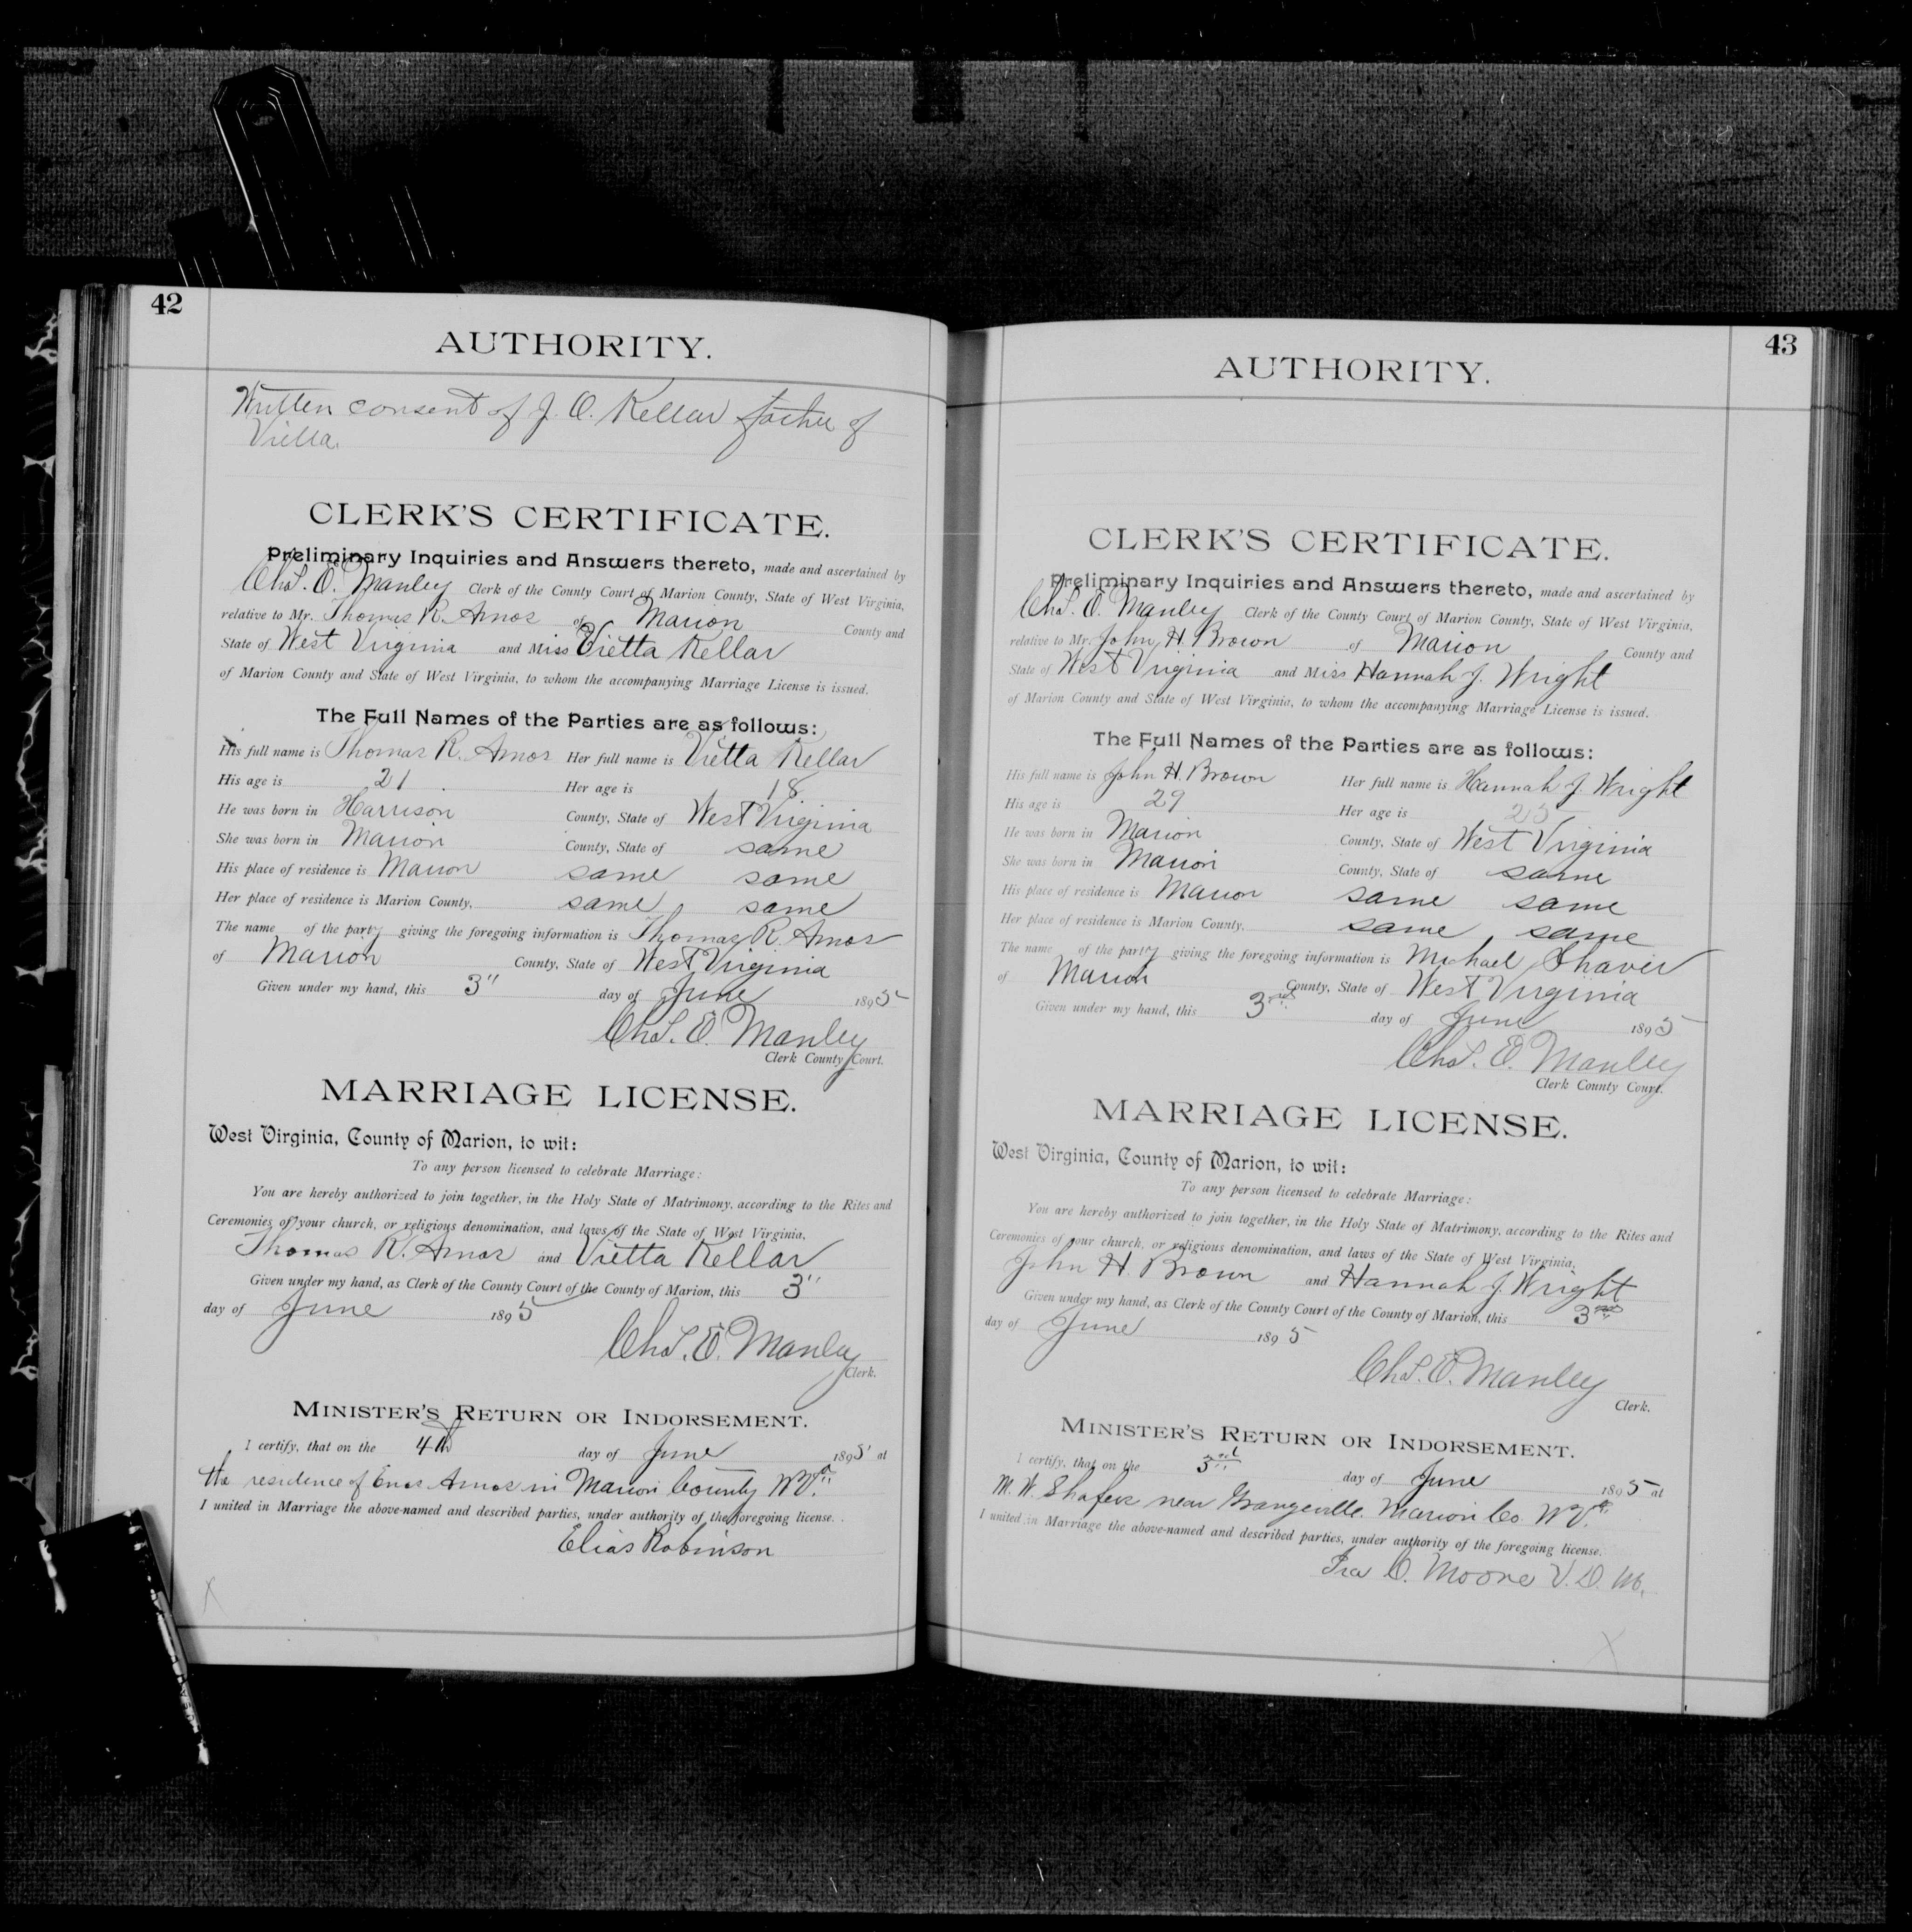 42
AUTHORITY.
Written consent of J. O. Kellar father of
Vietta.
CLERK'S CERTIFICATE.
Preliminary Inquiries and Answers thereto, made and ascertained by
Chs. E. Manley Clerk of the County Court of Marion County, State of West Virginia,
relative to Mr. Thomas R. Amos of Marion County and
State of West Virginia and Miss Vietta Kellar
of Marion County and State of West Virginia, to whom the accompanying Marriage License is issued.
The Full Names of the Parties are as follows:
His full name is Thomas R. Amos Her full name is Vietta Kellar
His age is 21 Her age is 18
He was born in Harrison County, State of West Virginia
She was born in Marion County, State of same
His place of residence is Marion same same
Her place of residence is Marion County, same same
The name of the party giving the foregoing information is Thomas R. Amos
of Marion County, State of West Virginia
Given under my hand, this 3" day of June 1895
Chs. E. Manley
Clerk County Court.
MARRIAGE LICENSE.
West Virginia, County of Marion, to wit:
To any person licensed to celebrate Marriage:
You are hereby authorized to join together, in the Holy State of Matrimony, according to the Rites and
Ceremonies of your church, or religious denomination, and laws of the State of West Virginia,
Thomas R. Amos and Vietta Kellar
Given under my hand, as Clerk of the County Court of the County of Marion, this 3"
day of June 1895
Chs. E. Manley
Clerk.
MINISTER'S RETURN OR INDORSEMENT.
I certify, that on the 4th day of June 1895 at
the residence of Enos Amos in Marion County W Va
I united in Marriage the above-named and described parties, under authority of the foregoing license.
Elias Robinson
43
AUTHORITY.
CLERK'S CERTIFICATE.
Preliminary Inquiries and Answers thereto, made and ascertained by
Chs. E. Manley Clerk of the County Court of Marion County, State of West Virginia,
relative to Mr. John H. Brown of Marion County and
State of West Virginia and Miss Hannah J. Wright
of Marion County and State of West Virginia, to whom the accompanying Marriage License is issued.
The Full Names of the Parties are as follows:
His full name is John H. Brown Her full name is Hannah J Wright
His age is 29 Her age is 25
He was born in Marion County, State of West Virginia
She was born in Marion County, State of same
His place of residence is Marion same same
Her place of residence is Marion County, same same
The name of the party giving the foregoing information is Michael Shaver
of Marion County, State of West Virginia
Given under my hand, this 3rd day of June 1895
Chs. E. Manley
Clerk County Court.
MARRIAGE LICENSE.
West Virginia, County of Marion, to wit:
To any person licensed to celebrate Marriage:
You are hereby authorized to join together, in the Holy State of Matrimony, according to the Rites and
Ceremonies of your church, or religious denomination, and laws of the State of West Virginia,
John H. Brown and Hannah J. Wright
Given under my hand, as Clerk of the County Court of the County of Marion, this 3rd
day of June 1895
Chs. E. Manley
Clerk.
MINISTER'S RETURN OR INDORSEMENT.
I certify, that on the day of June 1895 at
M. W. Shafers near Grangeville Marion Co. W Va
I united in Marriage the above-named and described parties, under authority of the foregoing license.
Ira C. Moore V. D. M.